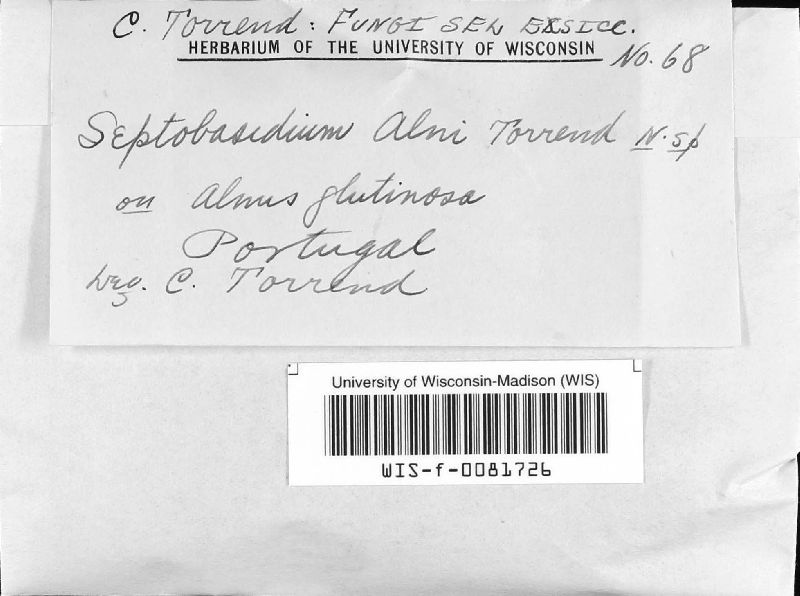 C. Torrend: Fungi Sel Exsicc.
HERBARIUM OF THE UNIVERSITY OF WISCONSIN
No. 68
Septobasidium Alni Torrend N. Sp
on Alnus glutinosa
Portugal
Leg. C. Torrend
University of Wisconsin-Madison (WIS)
WIS-f-0081726